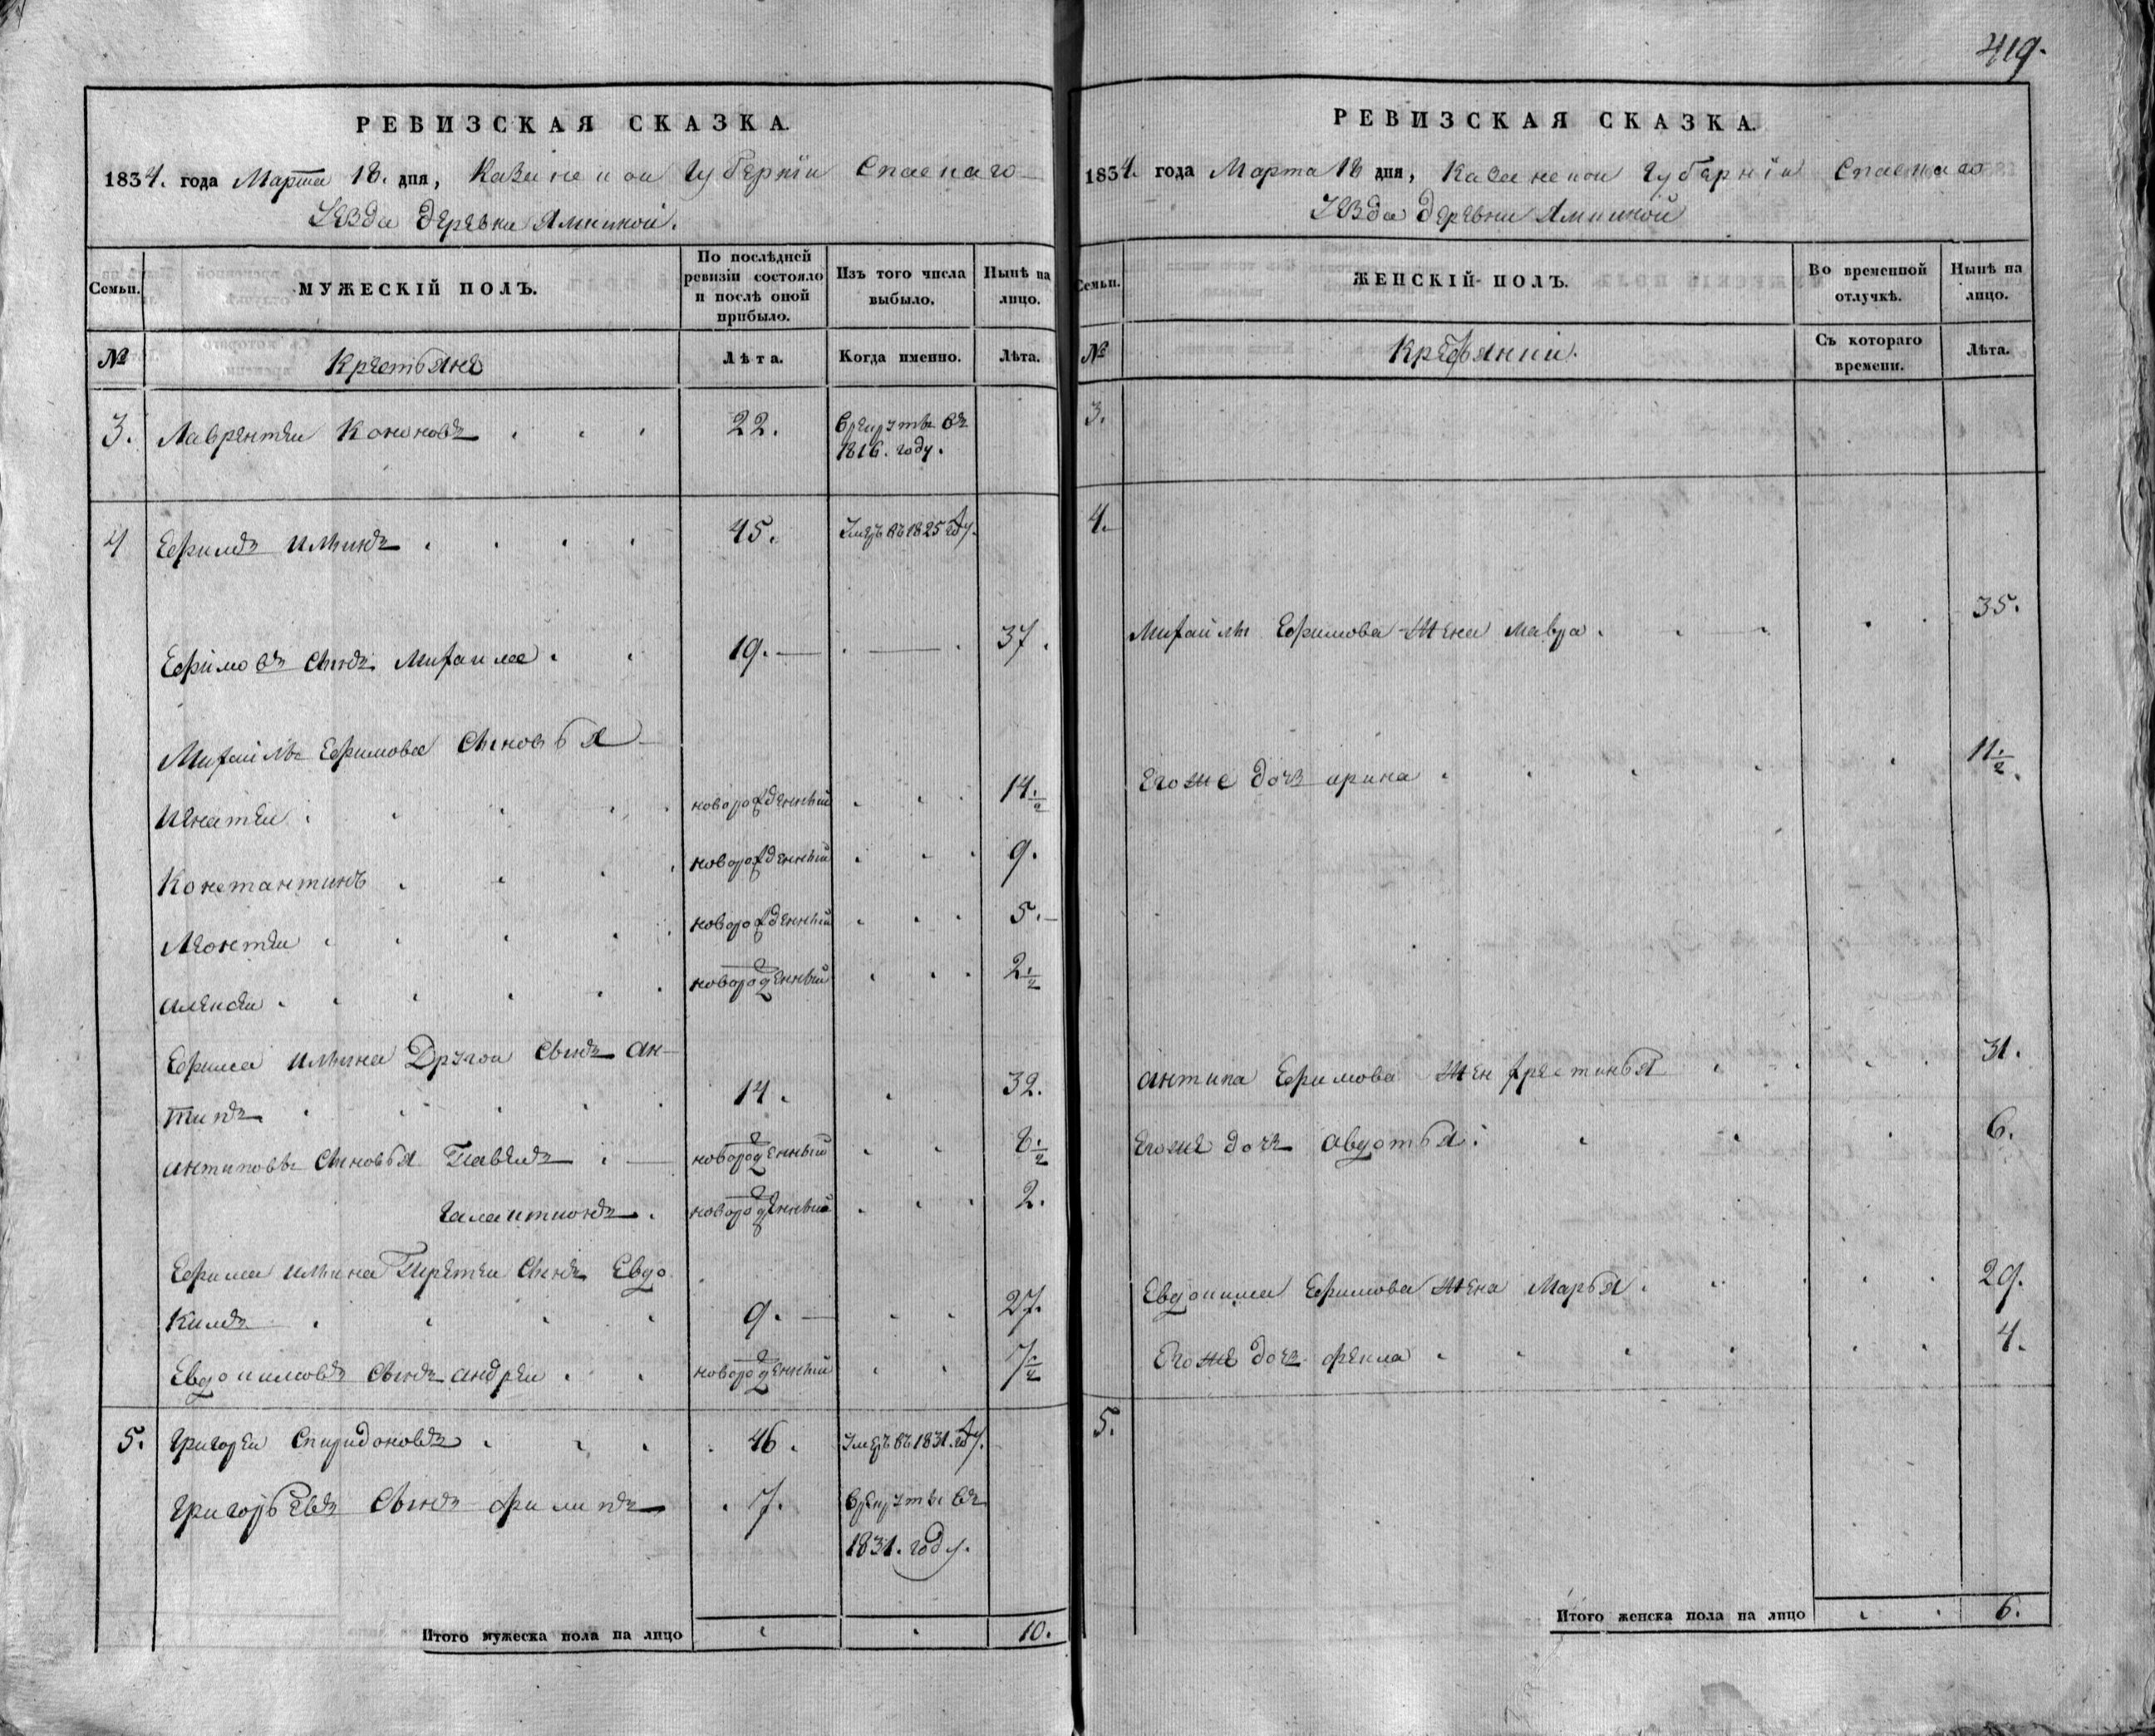 419.
РЕВИЗСКАЯ СКАЗКА.
1834. года Марта 18. дня, Казанской Губернїи Спаскаго
Уѣзда деревни Ямкиной.
Семьи.
МУЖЕСКІЙ ПОЛЪ.
По послѣдней ревизіи состояло и послѣ оной прибыло.
Изъ того числа выбыло.
Нынѣ на лицо.
№
Крестьяне
Лѣта.
Когда именно.
Лѣта.
3. Лаврентеи Кононовъ 22. Врекруты въ
1816. году.
4 Ефимъ Ильинъ 45. Умеръ въ 1825 году.
Ефимовъ сынъ Михаила 19. 37.
Михайлы Ефимова сыновья
Игнатеи новорожденный 14. 1/2
Константинъ новорожденный 9.
Леонтеи новорожденный 5.
алексеи новорожденный 2. 1/2
Ефима Ильина Другои сынъ ан-
типъ 14. 32.
антиповы сыновья Павелъ новорожденный 8. 1/2
Галактионъ новорожденный 2.
Ефима Ильина Третеи сынъ Евдо
кимъ 9. 27.
Евдокимовъ сынъ андреи новорожденный 7. 1/2
5. Григореи Спиридоновъ 46. Умеръ въ 1831. году.
Григорьевъ сынъ филипъ 7. Врекруты въ
1831. году.
Итого мужеска пола на лицо 10.
РЕВИЗСКАЯ СКАЗКА.
1834. года Марта 18 дня, Казанской Губернїи Спаскаго
Уѣзда деревни Ямкиной
Семьи.
ЖЕНСКІЙ ПОЛЪ.
Во временной отлучкѣ.
Нынѣ на лицо.
№
Крестьянки.
Съ котораго времени.
Лѣта.
3.
4.
Михайлы Ефимова жена мавра 35.
Егоже дочь ирина 11. 1/2
антипа Ефимова жен хрестинья 31.
Егоже дочь авдотья 6.
Евдокима Ефимова жена Марья 29.
Егоже дочь фекла 4.
5.
Итого женска пола на лицо 6.